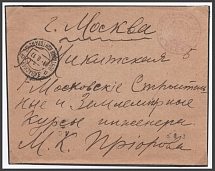 г. Москва
Никитская 5
Московские Строитель
ные и Землемерные
Курсы инженера
М. К. Приорова